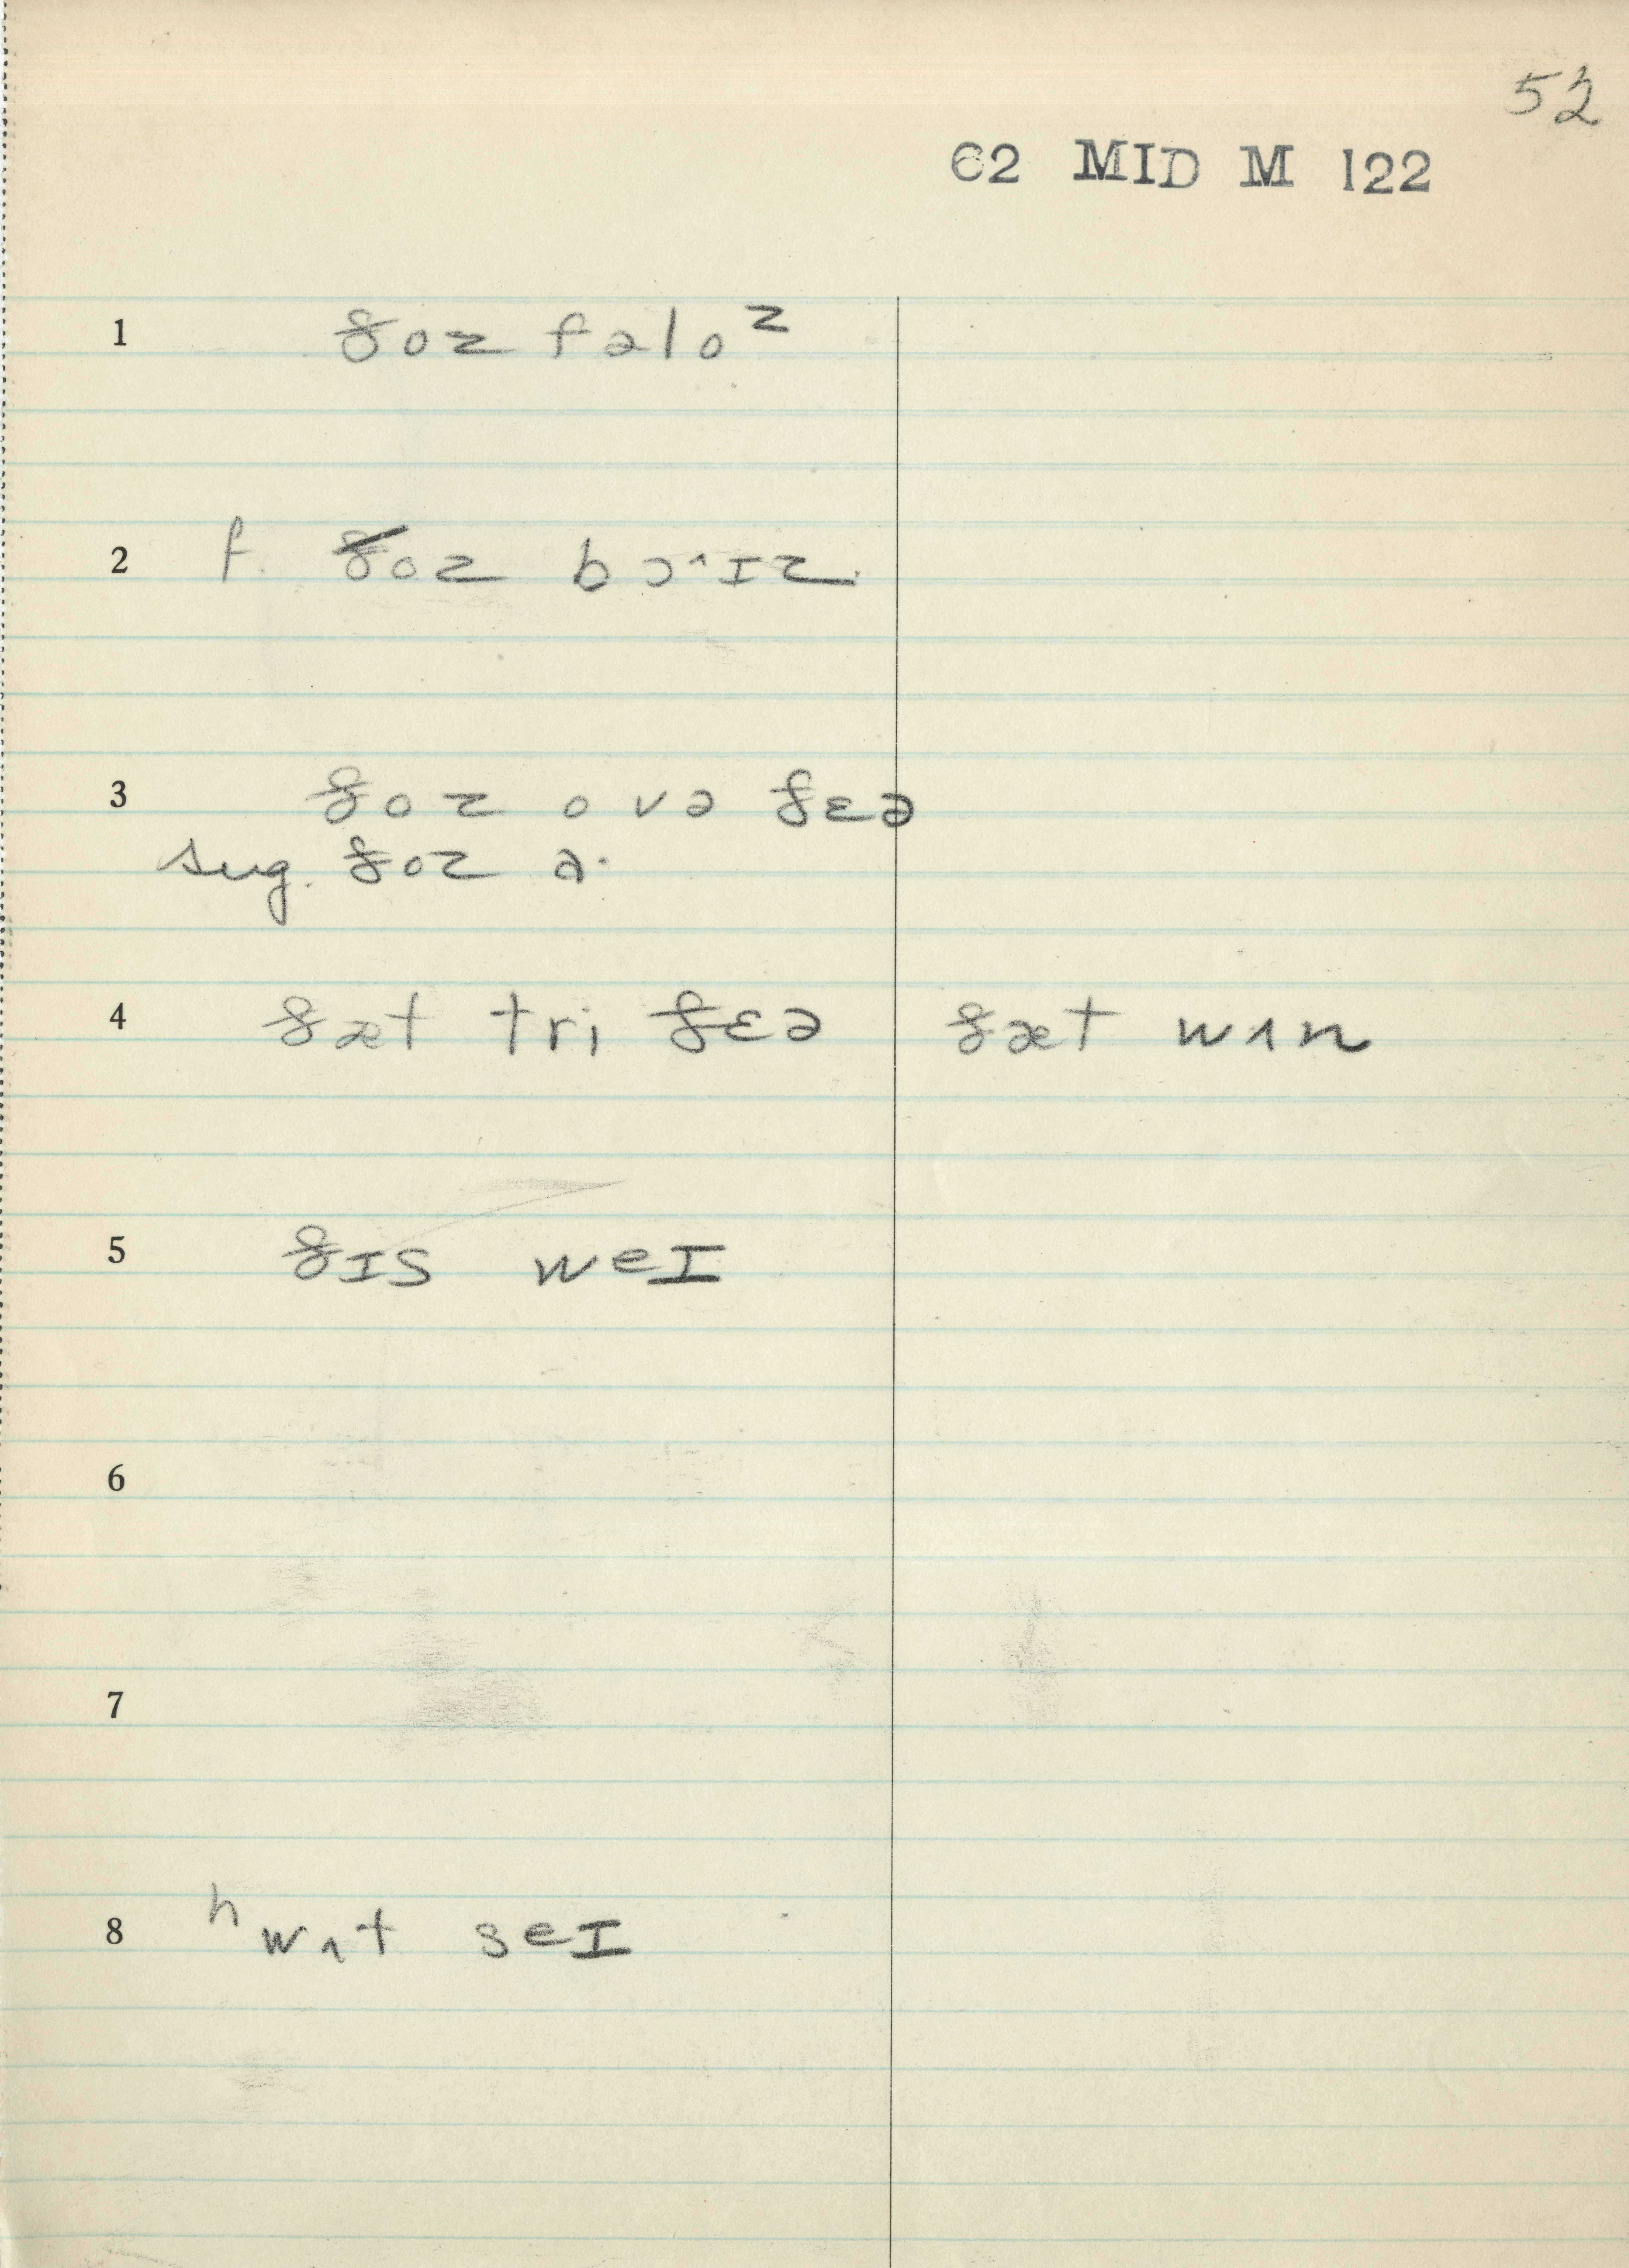 52
62 MID M 122
1 ðoz fəlo ᶻ
2 f. ðoz bɔ^ɪz
3 ðoz ovə ðɛə
sug. ðoz a·
4 ðæt tri ðɛə ðæt wʌn
5 ðɪs weɪ
6
7
8 ʰwʌt seɪ